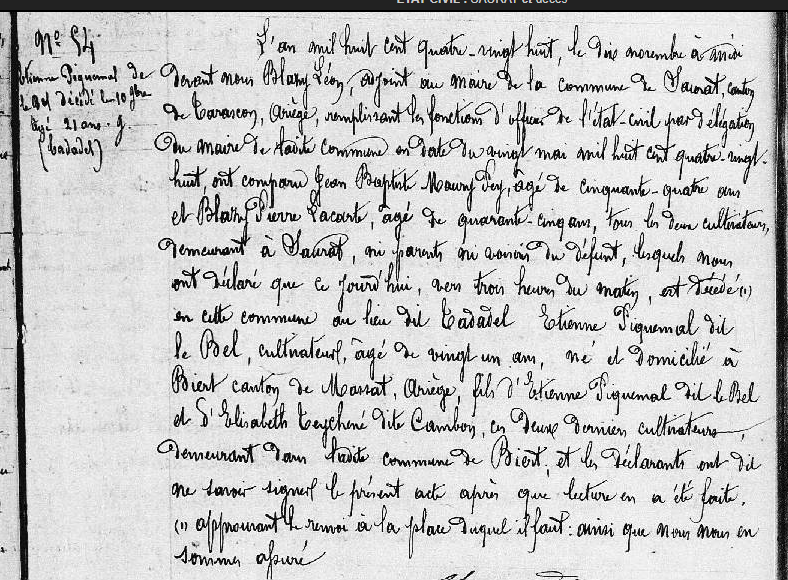 ETAT CIVIL : SAURAT et décès
N° 54
Etienne Piquemal dit
le Bel décédé le 10 9bre
âgé 21 ans. g.
(Cadadel)
L'an mil huit cent quatre-vingt huit, le dix novembre à midi
devant nous Blazy Léon, adjoint au maire de la commune de Saurat, canton
de Tarascon, Ariège, remplissant les fonctions d'officier de l'état-civil par délégation
du maire de ladite commune en date du vingt mai mil huit cent quatre-vingt-
huit, ont comparu Jean Baptiste Maury Pey, âgé de cinquante-quatre ans
et Blazy Pierre Lacarte, âgé de quarante-cinq ans, tous les deux cultivateurs,
demeurant à Saurat, ni parents ni voisins du défunt, lesquels nous
ont déclaré que ce jourd'hui, vers trois heures du matin, est décédé (1)
en cette commune au lieu dit Cadadel Etienne Piquemal dit
le Bel, cultivateur, âgé de vingt un ans, né et domicilié à
Biert canton de Massat, Ariège, fils d'Etienne Piquemal dit le Bel
et d'Elisabeth Teychené dite Cambon, ces deux derniers cultivateurs,
demeurant dans ladite commune de Biert; et les déclarants ont dit
ne savoir signer le présent acte après que lecture en a été faite.
(1) approuvant le renvoi à la place duquel il faut: ainsi que nous nous en
sommes assuré